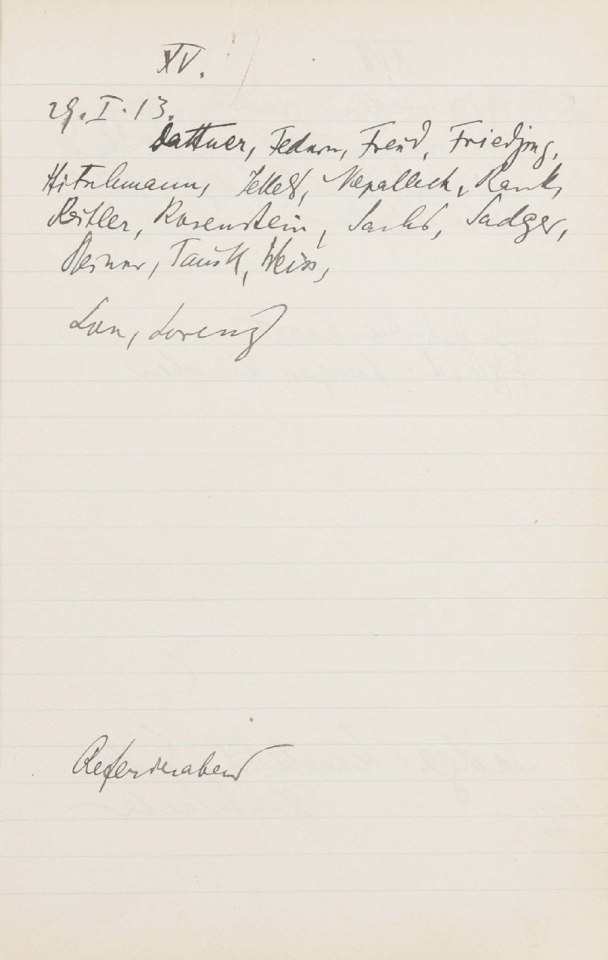 XV.
29.I.13.
Dattner, Federn, Freud, Friedjung,
Hitschmann, Jekels, Nepallek, Rank,
Reitler, Rosenstein, Sachs, Sadger,
Steiner, Tausk, Weiss,
Lou, Lorenz
Referierabend